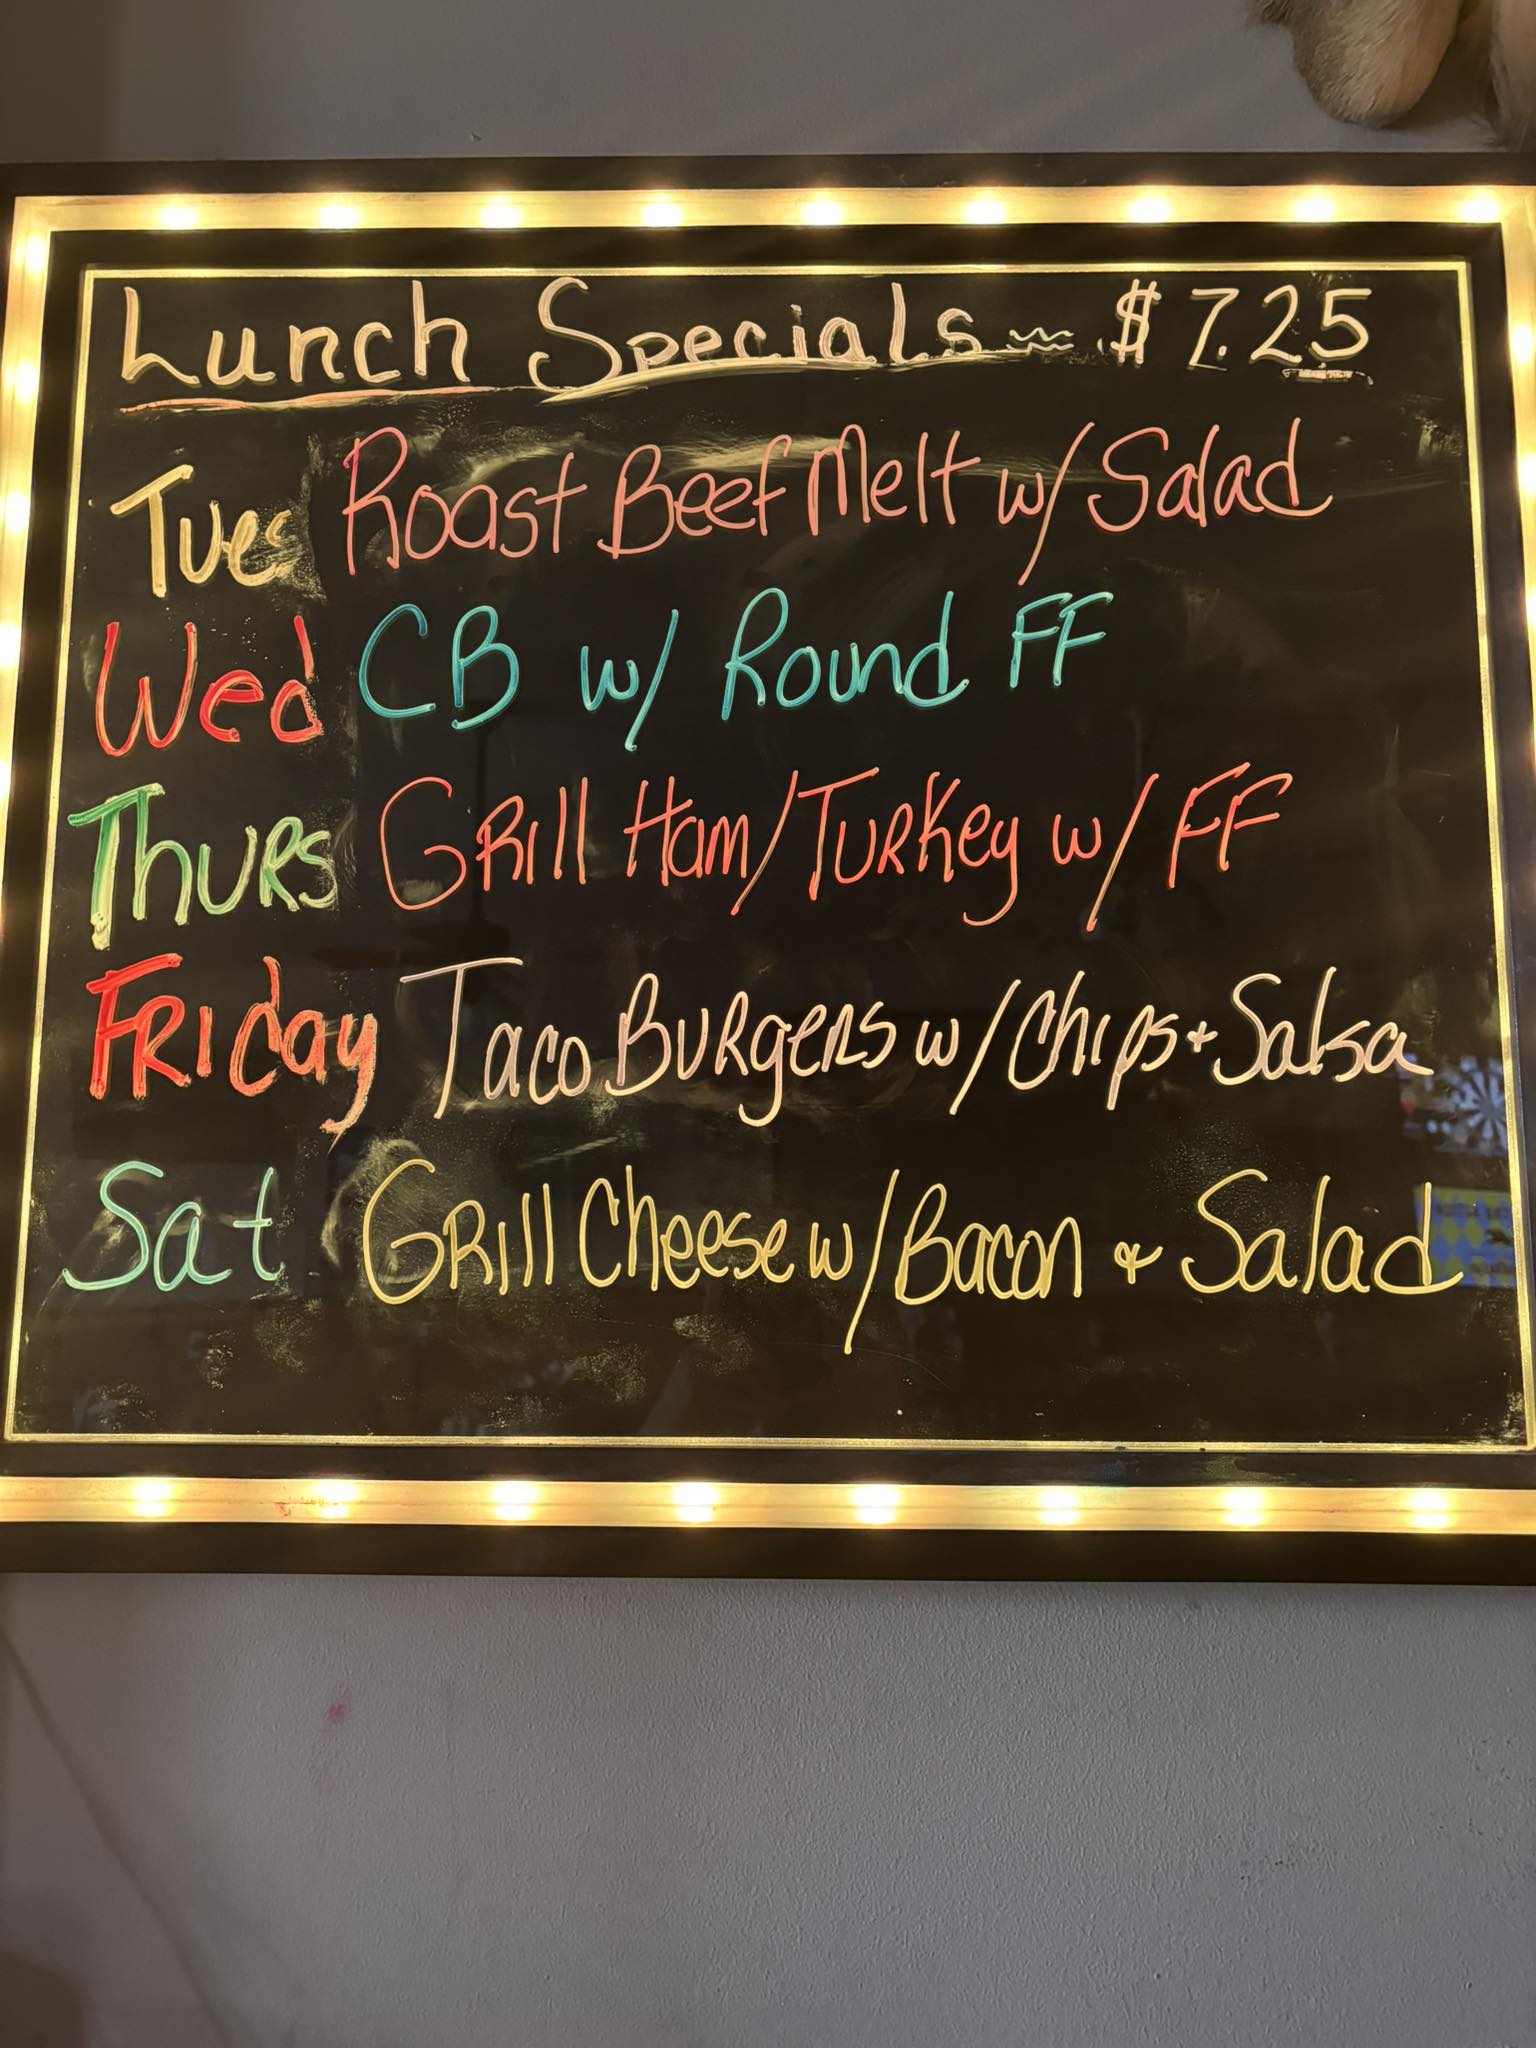 Lunch Specials ~ $7.25
Tues Roast Beef Melt w/ Salad
Wed CB w/ Round FF
Thurs Grill Ham/Turkey w/ FF
Friday Taco Burgers w/ Chips + Salsa
Sat Grill Cheese w/ Bacon & Salad